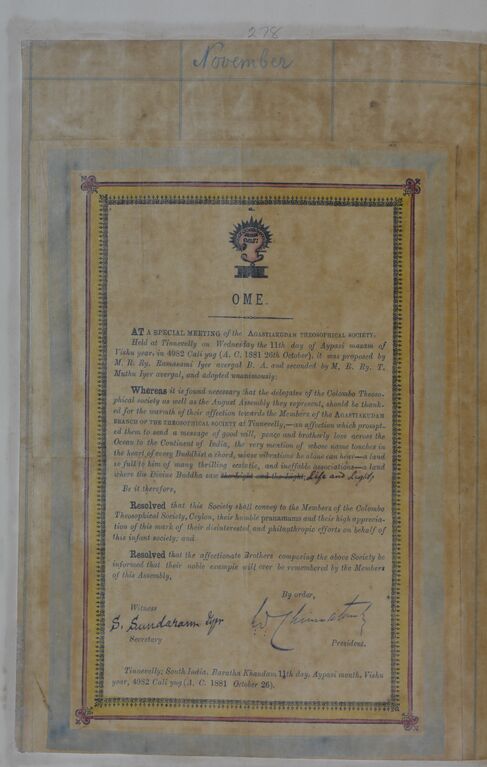 278
November
OME.
AT A SPECIAL MEETING of the AGASTIAKUDAM THEOSOPHICAL SOCIETY.
Held at Tinnevelly on Wednesday the 11th day of Aypasi maasm of
Vishu year, in 4982 Cali yug (A. C. 1881 26th October), it was proposed by
M. R. Ry. Ramasami Iyer avergal B. A. and seconded by M. R. Ry. T.
Muthu Iyer avergal, and adopted unanimously:
Whereas it is found necessary that the delegates of the Colombo Theoso-
phical society as well as the August Assembly they represent, should be thank-
ed for the warmth of their affection towards the Members of the AGASTIAKUDAM
BRANCH OF THE THEOSOPHICAL SOCIETY at Tinnevelly,—an affection which prompt-
ed them to send a message of good will, peace and brotherly love across the
Ocean to the Continent of India, the very mention of whose name touches in
the heart of every Buddhist a chord, whose vibrations he alone can hear—a land
so full to him of many thrilling ecstatic, and ineffable associations—a land
where the Divine Buddha saw the Light and the Light, Life and Light;
Be it therefore,
Resolved that this Society shall convey to the Members of the Colombo
Theosophical Society, Ceylon, their humble pranamams and their high apprecia-
tion of this mark of their disinterested and philanthropic efforts on behalf of
this infant society; and
Resolved that the affectionate Brothers composing the above Society be
informed that their noble example will ever be remembered by the Members
of this Assembly,
By order,
Witness
S. Sundaram Iyer
Secretary
President.
Tinnevelly; South India. Baratha Khandam 11th day. Aypasi month, Vishu
year, 4982 Cali yug (A. C. 1881 October 26).